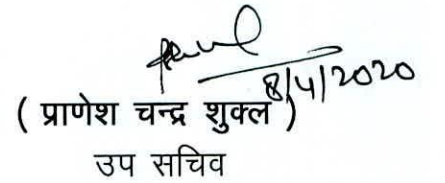 8/4/2020
( प्राणेश चन्द्र शुक्ल )
उप सचिव